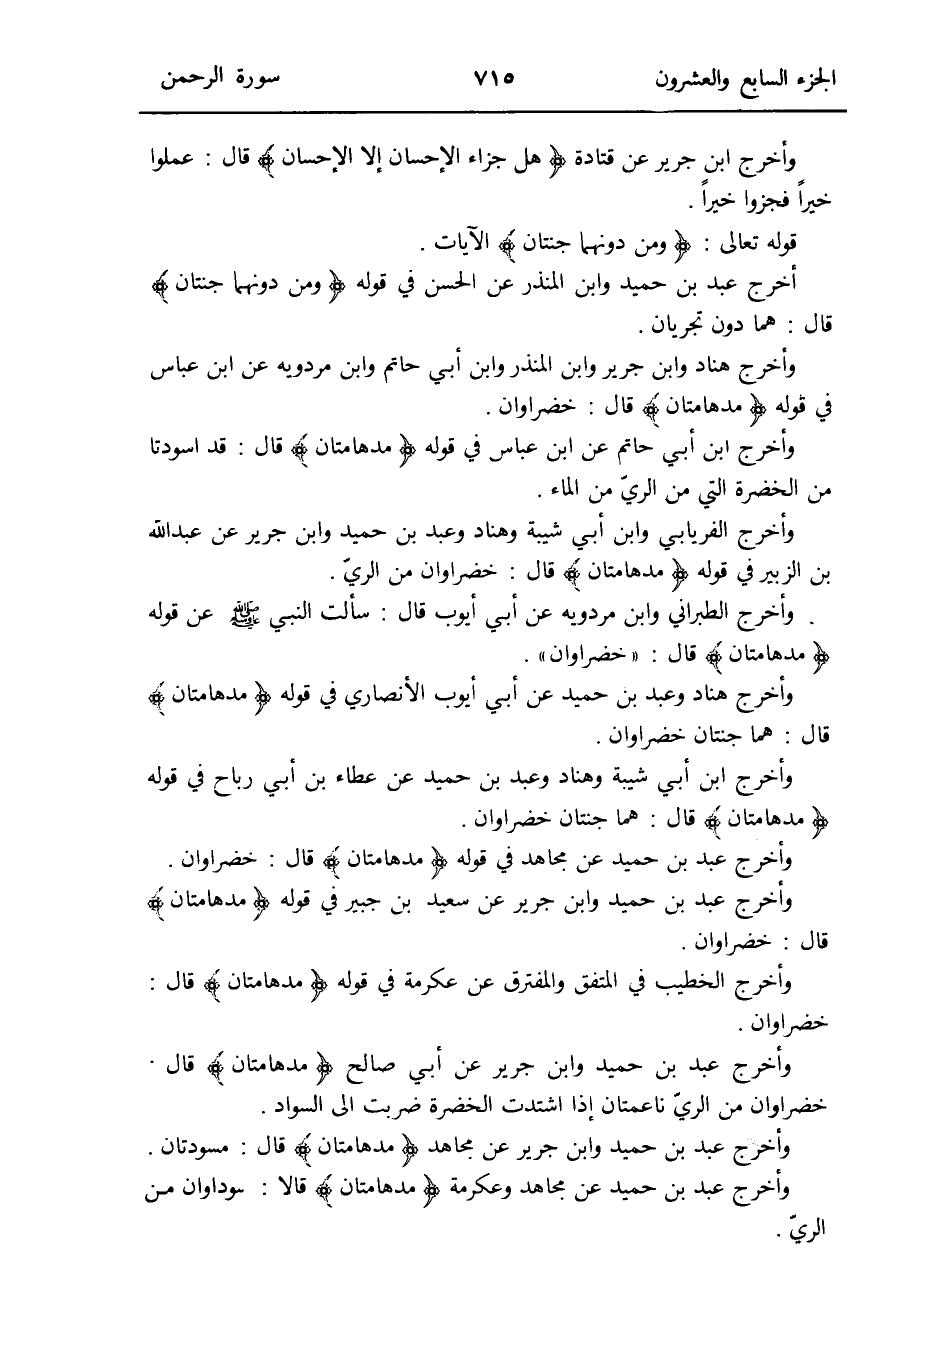 الجزء السابع والعشرون ٧١٥ سورة الرحمن
وأخرج ابن جرير عن قتادة ﴿ هل جزاء الإحسان إلا الإحسان ﴾ قال : عملوا
خيراً فجزوا خيراً .
قوله تعالى : ﴿ ومن دونهما جنتان ﴾ الآيات .
أخرج عبد بن حميد وابن المنذر عن الحسن في قوله ﴿ ومن دونهما جنتان ﴾
قال : هما دون تجريان .
وأخرج هناد وابن جرير وابن المنذر وابن أبي حاتم وابن مردويه عن ابن عباس
في قوله ﴿ مدهامتان ﴾ قال : خضراوان .
وأخرج ابن أبي حاتم عن ابن عباس في قوله ﴿ مدهامتان ﴾ قال : قد اسودتا
من الخضرة التي من الريّ من الماء .
وأخرج الفريابي وابن أبي شيبة وهناد وعبد بن حميد وابن جرير عن عبدالله
بن الزبير في قوله ﴿ مدهامتان ﴾ قال : خضراوان من الريّ .
وأخرج الطبراني وابن مردويه عن أبي أيوب قال : سألت النبي ﷺ عن قوله
﴿ مدهامتان ﴾ قال : « خضراوان» .
وأخرج هناد وعبد بن حميد عن أبي أيوب الأنصاري في قوله ﴿ مدهامتان ﴾
قال : هما جنتان خضراوان .
وأخرج ابن أبي شيبة وهناد وعبد بن حميد عن عطاء بن أبي رباح في قوله
﴿ مدهامتان ﴾ قال : هما جنتان خضراوان .
وأخرج عبد بن حميد عن مجاهد في قوله ﴿ مدهامتان ﴾ قال : خضراوان .
وأخرج عبد بن حميد وابن جرير عن سعيد بن جبير في قوله ﴿ مدهامتان ﴾
قال : خضراوان .
وأخرج الخطيب في المتفق والمفترق عن عكرمة في قوله ﴿ مدهامتان ﴾ قال :
خضراوان .
وأخرج عبد بن حميد وابن جرير عن أبي صالح ﴿ مدهامتان ﴾ قال
خضراوان من الريّ ناعمتان إذا اشتدت الخضرة ضربت الى السواد .
وأخرج عبد بن حميد وابن جرير عن مجاهد ﴿ مدهامتان ﴾ قال : مسودتان .
وأخرج عبد بن حميد عن مجاهد وعكرمة ﴿ مدهامتان ﴾ قالا : سوداوان من
الريّ .